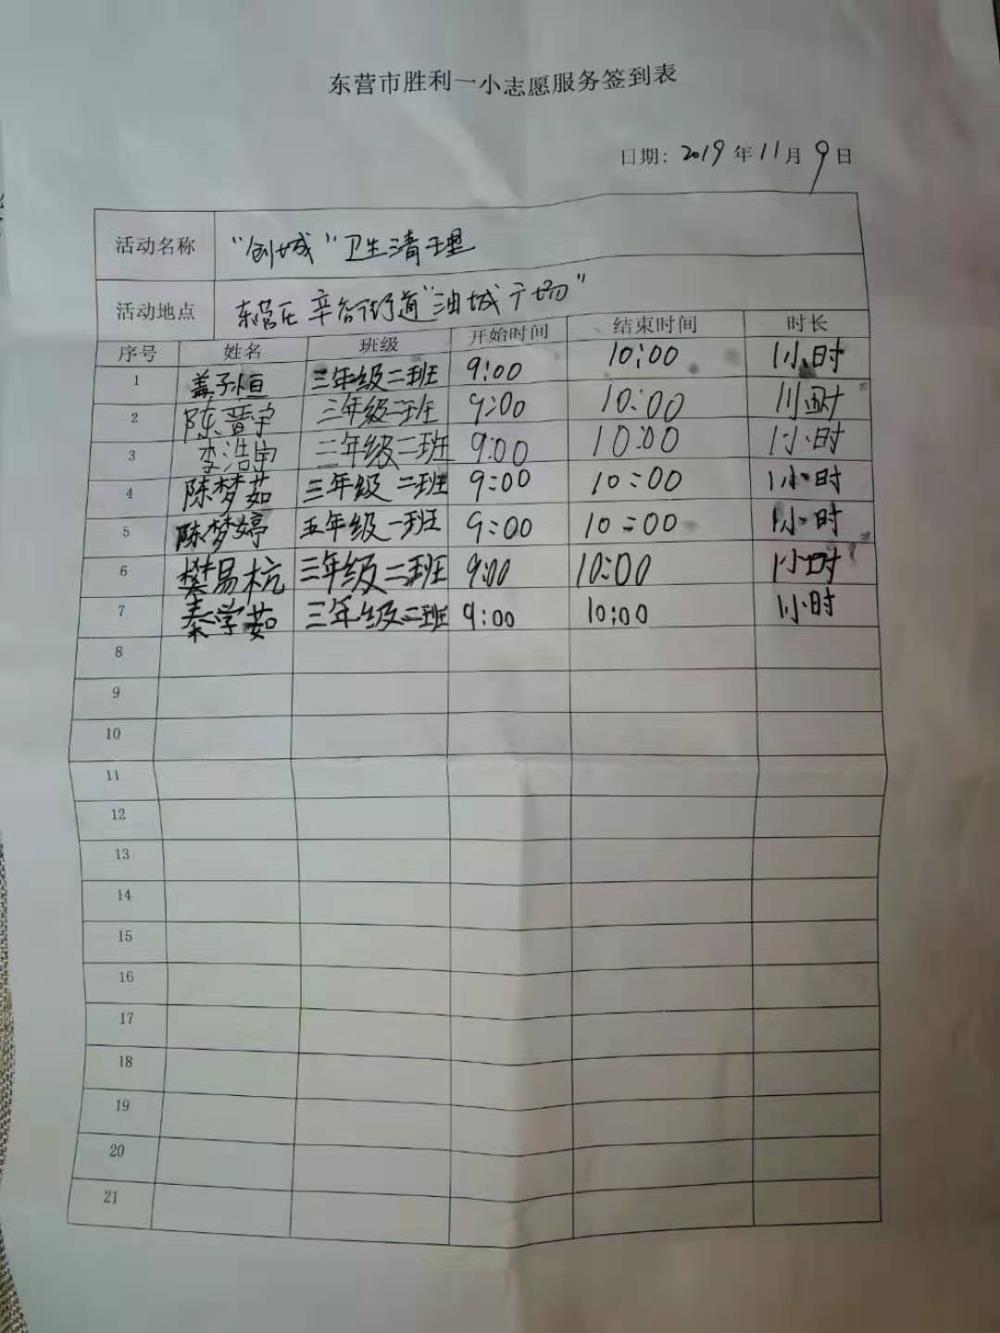 东营市胜利一小志愿服务签到表
日期: 2019 年 11 月 9 日
活动名称 "创城"卫生清理
活动地点 东营区辛店街道"油城广场"
序号 姓名 班级 开始时间 结束时间 时长
1 盖子恒 三年级二班 9:00 10:00 1小时
2 陈晋宇 三年级二班 9:00 10:00 1小时
3 李浩宇 三年级二班 9:00 10:00 1小时
4 陈梦茹 三年级二班 9:00 10:00 1小时
5 陈梦婷 五年级一班 9:00 10:00 1小时
6 樊易杭 三年级二班 9:00 10:00 1小时
7 秦学茹 三年级二班 9:00 10:00 1小时
8
9
10
11
12
13
14
15
16
17
18
19
20
21